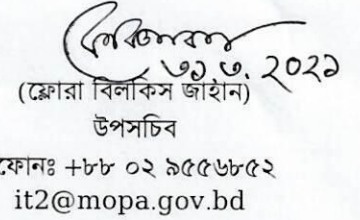 ৩১.৩.২০২১
(ফ্লোরা বিলকিস জাহান)
উপসচিব
ফোনঃ +৮৮ ০২ ৯৫৫৬৮৫২
it2@mopa.gov.bd